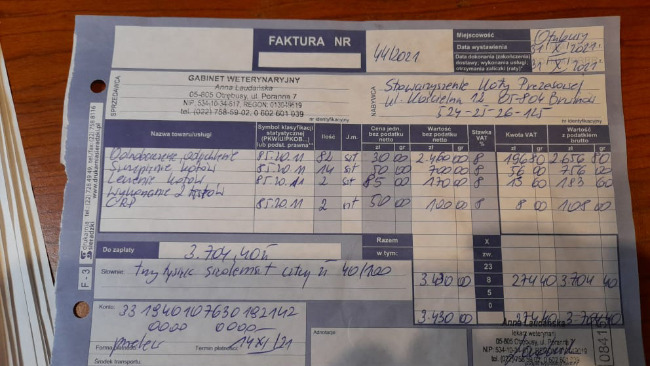 FAKTURA NR 44/2021
Miejscowość Otrębusy
Data wystawienia 31 X 2021
Data dokonania (zakończenia) dostawy, wykonania usługi, otrzymania zaliczki (raty)* 31 X 2021
SPRZEDAWCA
GABINET WETERYNARYJNY
Anna Laudańska
05-805 Otrębusy, ul. Poranna 7
tel. (022) 758-59-02, 0 602 601 939
nr identyfikacyjny
NABYWCA
Stowarzyszenie Koty Prezesowej
05-804
524-25-26-125
nr identyfikacyjny
Nazwa towaru/usługi
Symbol klasyfikacji statystycznej (PKWiU/PKOB...) lub podst. prawna**
Ilość
J.m.
Cena jedn. bez podatku netto
Wartość bez podatku netto
Stawka VAT %
Kwota VAT
Wartość z podatkiem brutto
zł gr zł gr zł gr zł gr
85.20.11 82 szt 30 00 2.460 00 8 196 80 2 656 80
kotów 85.20.11 14 szt 50 00 700 00 8 56 00 756 00
Leczenie kotów 85.20.11 2 szt 85 00 170 00 8 13 60 183 60
Wykonanie 2 testów
CRP 85.20.11 2 szt 50 00 100 00 8 8 00 108 00
Do zapłaty 3.704,40 zł
Razem X
w tym: zw.
23
8
5
0
3.430 00 274 40 3 704 40
3.430 00 274 40 3.704 40
Słownie: trzy tysiące siedemset cztery zł 40/100
Konto: 33 1940 1076 30 192142
0000 0000
Forma płatności przelew
Termin płatności 14 XI /21
Środek transportu
Adnotacje
F - 3
Anna Laudańska
lekarz weterynarii
05-805 Otrębusy